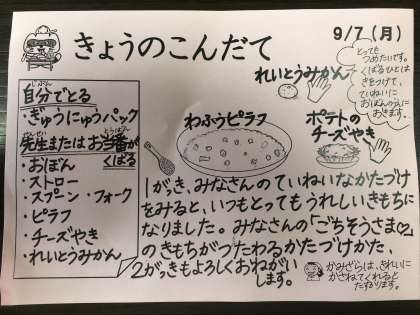 きょうのこんだて
9/7(月)
とっても
つめたいです。
くばるひとは
きをつけて、
ていねいに
おぼんの上に
おきます。
れいとうみかん
わふうピラフ
ポテトの
チーズやき
じぶん
自分でとる
・ぎゅうにゅうパック
せんせい とうばん
先生またはお当番が
くばる
・おぼん
・ストロー
・スプーン・フォーク
・ピラフ
・チーズやき
・れいとうみかん
1がっき、みなさんのていねいなかたづけ
をみると、いつもとってもうれしいきもちに
なりました。みなさんの「ごちそうさま♡」
のきもちがつたわるかたづけかた、
2がっきもよろしくおねがい
します。
かみざらは、きれいに
かさねてくれると
たすかります。